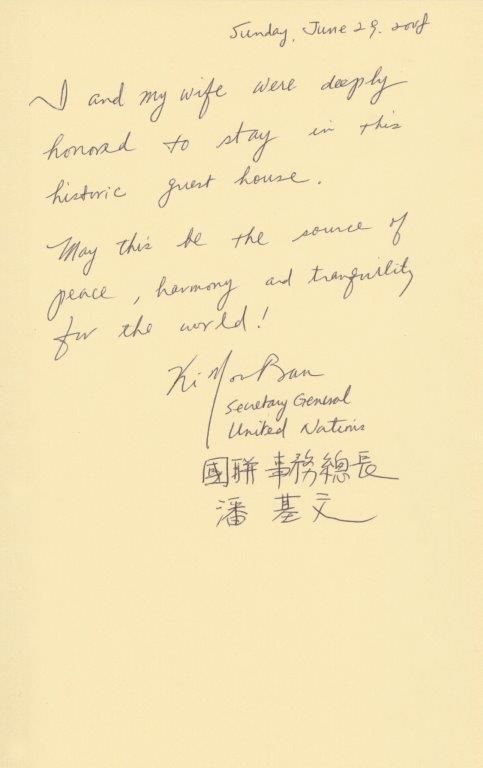 Sunday, June 29. 2008
I and my wife were deeply
honored to stay in this
historic guest house.
May this be the source of
peace, harmony and tranquility
for the world!
Ki Moon Ban
Secretary General
United Nations
國聯 事務總長
潘基文